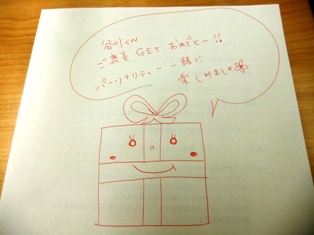 谷川くん
ご褒美 GET おめでとー!!
パーソナリティー 一緒に
楽しみましょ